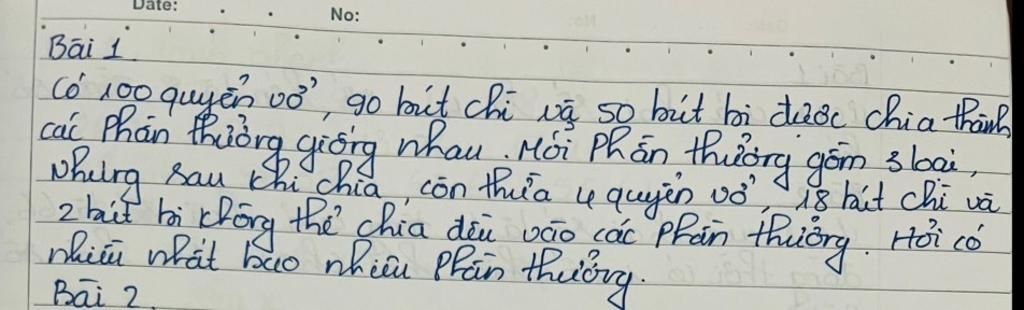 Date:
No:
Bài 1
Có 100 quyển vở, 90 bút chì và 50 bút bi được chia thành
các phần thưởng giống nhau. Mỗi phần thưởng gồm 3 loại,
Nhưng sau khi chia, còn thừa 4 quyển vở, 18 bút chì và
2 bút bi không thể chia đều vào các phần thưởng. Hỏi có
nhiều nhất bao nhiêu phần thưởng.
Bài 2.